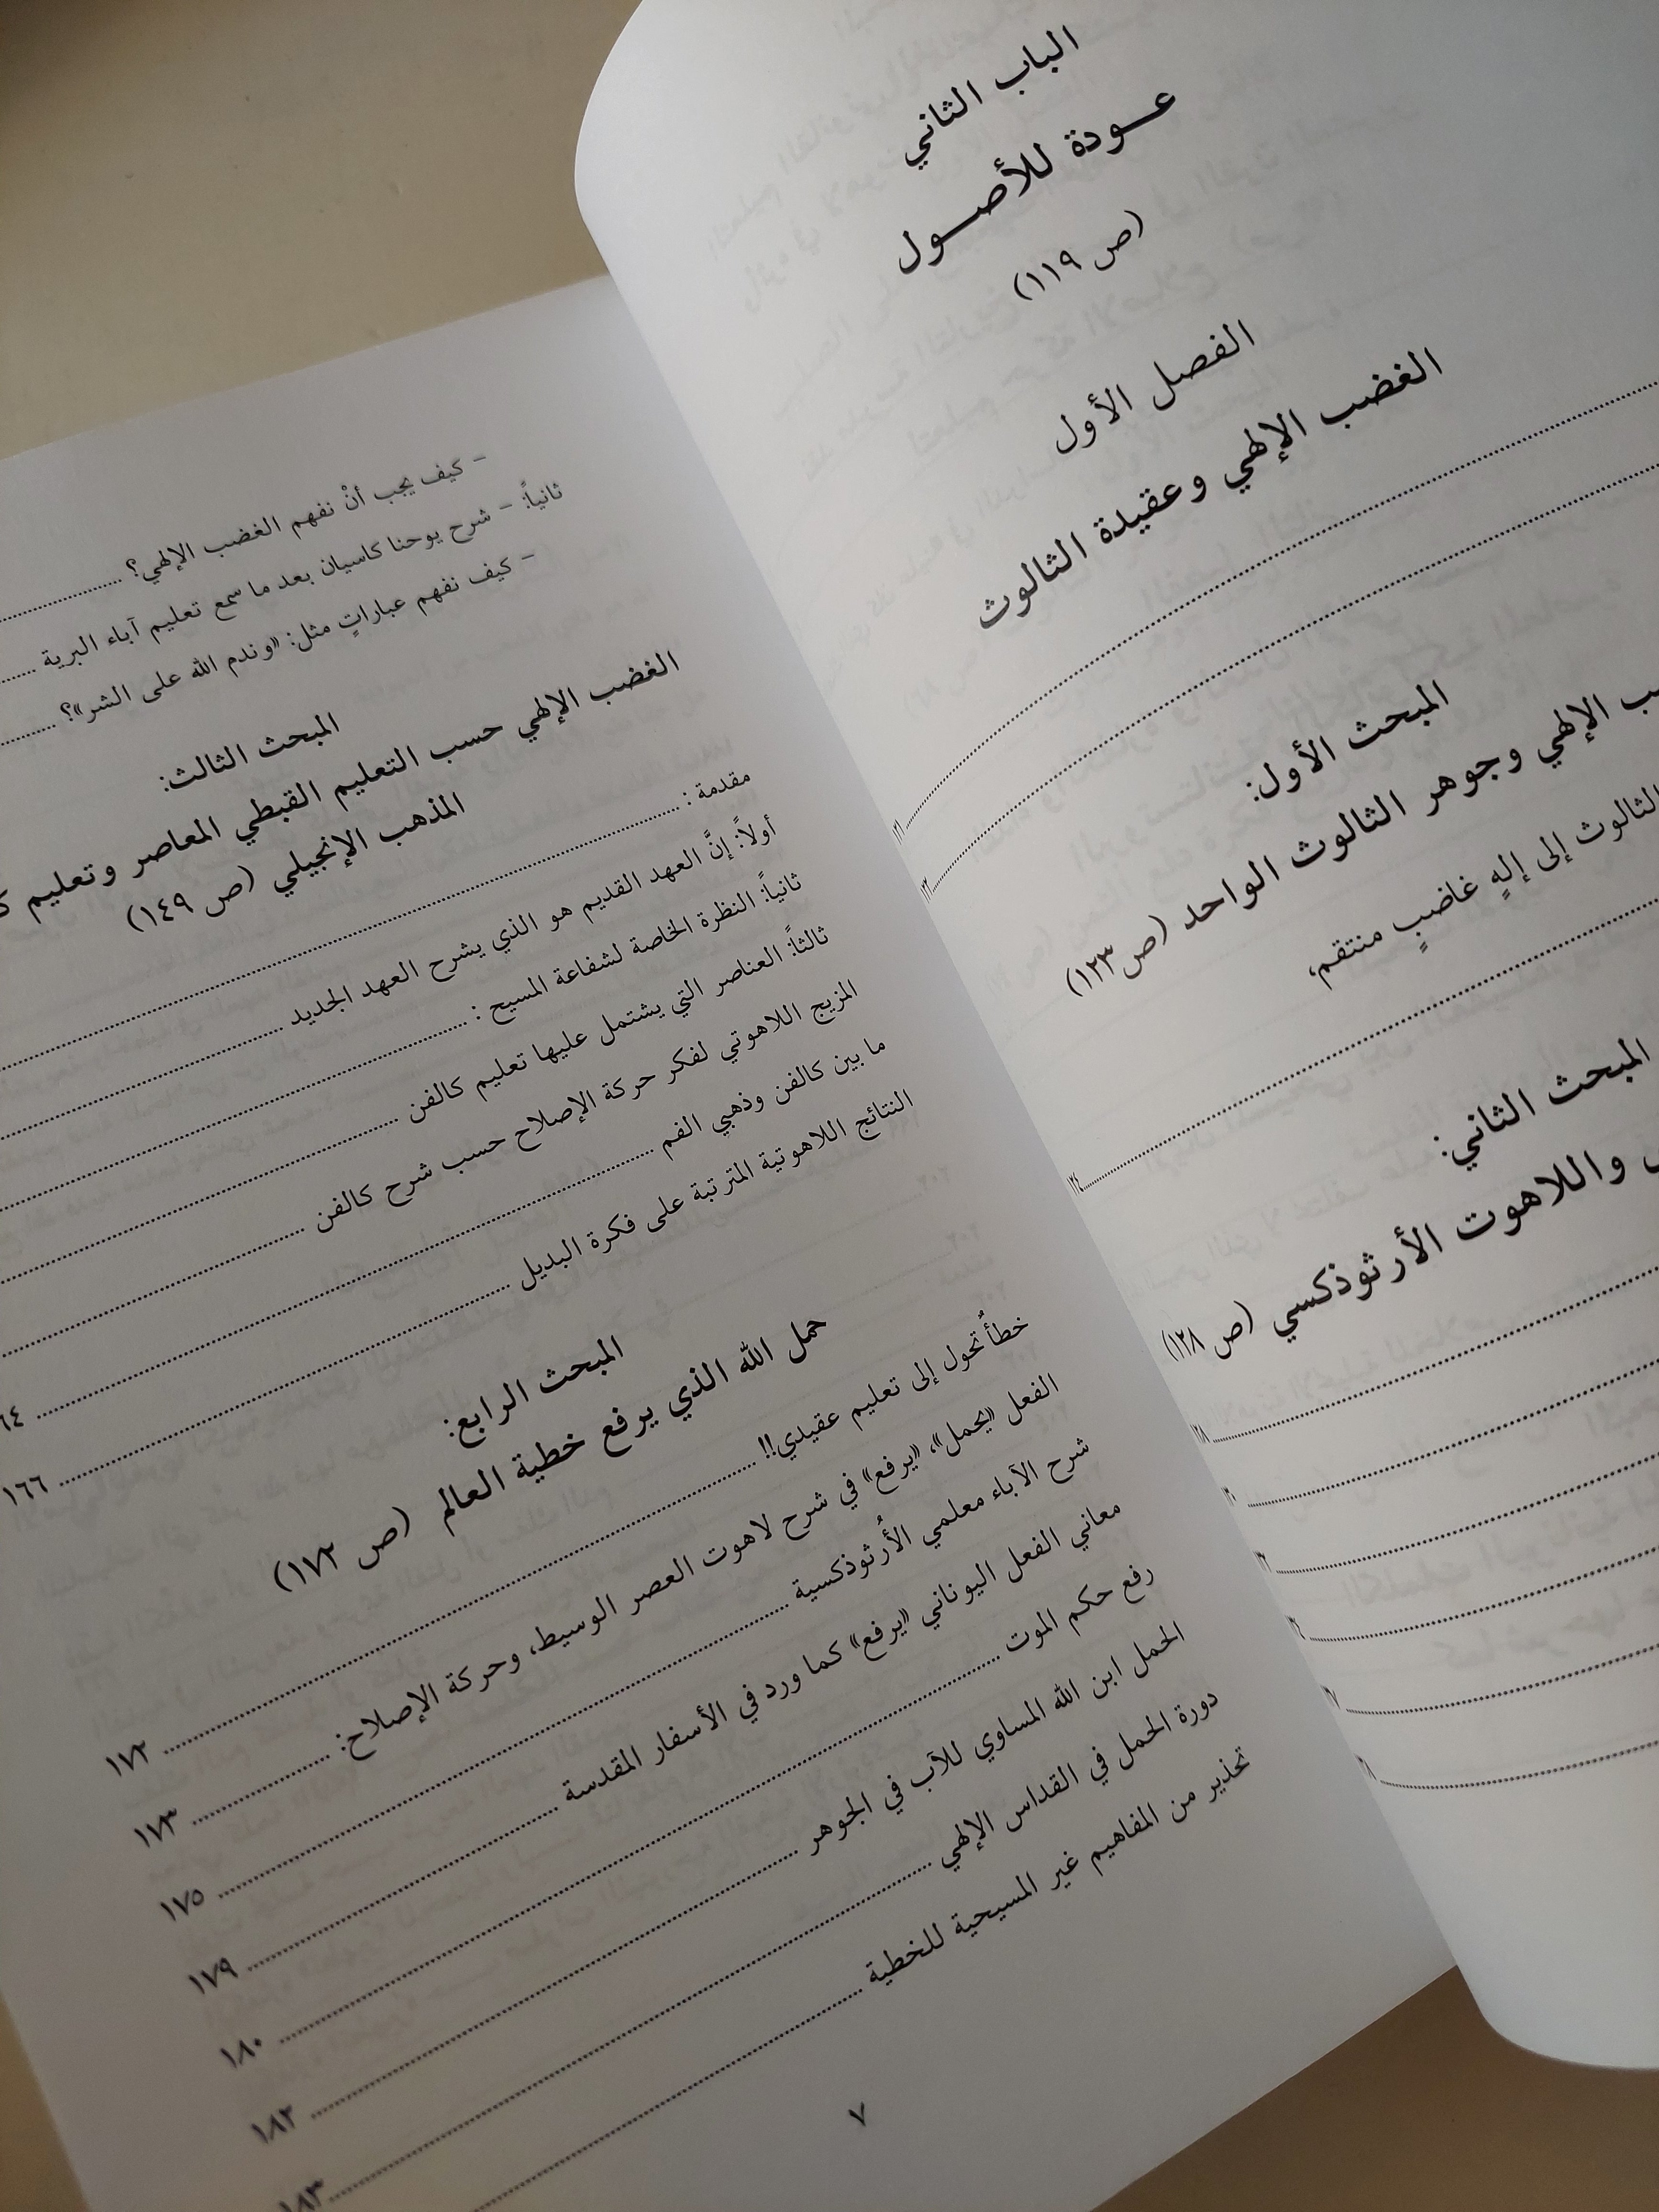 الباب الثاني
عـودة للأصـول
(ص ١١٩)
الفصل الأول
الغضب الإلهي وعقيدة الثالوث
١٢١
١٢٢
المبحث الأول:
الإلهي وجوهر الثالوث الواحد (ص١٢٣)
الثالوث إلى إلهٍ غاضبٍ منتقم،
١٢٤
المبحث الثاني:
واللاهوت الأرثوذكسي (ص ١٢٨)
١٢٨
- كيف يجب أنْ نفهم الغضب الإلهي؟
ثانياً: - شرح يوحنا كاسيان بعد ما سمع تعليم آباء البرية
- كيف نفهم عباراتٍ مثل: «وندم الله على الشر»؟
المبحث الثالث:
الغضب الإلهي حسب التعليم القبطي المعاصر وتعليم
المذهب الإنجيلي (ص ١٤٩)
مقدمة :
أولاً: إنَّ العهد القديم هو الذي يشرح العهد الجديد
ثانياً: النظرة الخاصة لشفاعة المسيح :
ثالثاً: العناصر التي يشتمل عليها تعليم كالفن
المزيج اللاهوتي لفكر حركة الإصلاح حسب شرح كالفن
ما بين كالفن وذهبي الفم ٦٤
النتائج اللاهوتية المترتبة على فكرة البديل ١٦٦
المبحث الرابع:
حمل الله الذي يرفع خطية العالم (ص ١٧٢)
خطأٌ تحول إلى تعليم عقيدي!! ١٧٢
الفعل «يحمل»، «يرفع» في شرح لاهوت العصر الوسيط، وحركة الإصلاح: ١٧٣
شرح الآباء معلمي الأُرثوذكسية ١٧٥
معاني الفعل اليوناني «يرفع» كما ورد في الأسفار المقدسة ١٧٩
رفع حكم الموت ١٨٠
الحمل ابن الله المساوي للآب في الجوهر ١٨٢
دورة الحمل في القداس الإلهي ١٨٣
تحذير من المفاهيم غير المسيحية للخطية
٧